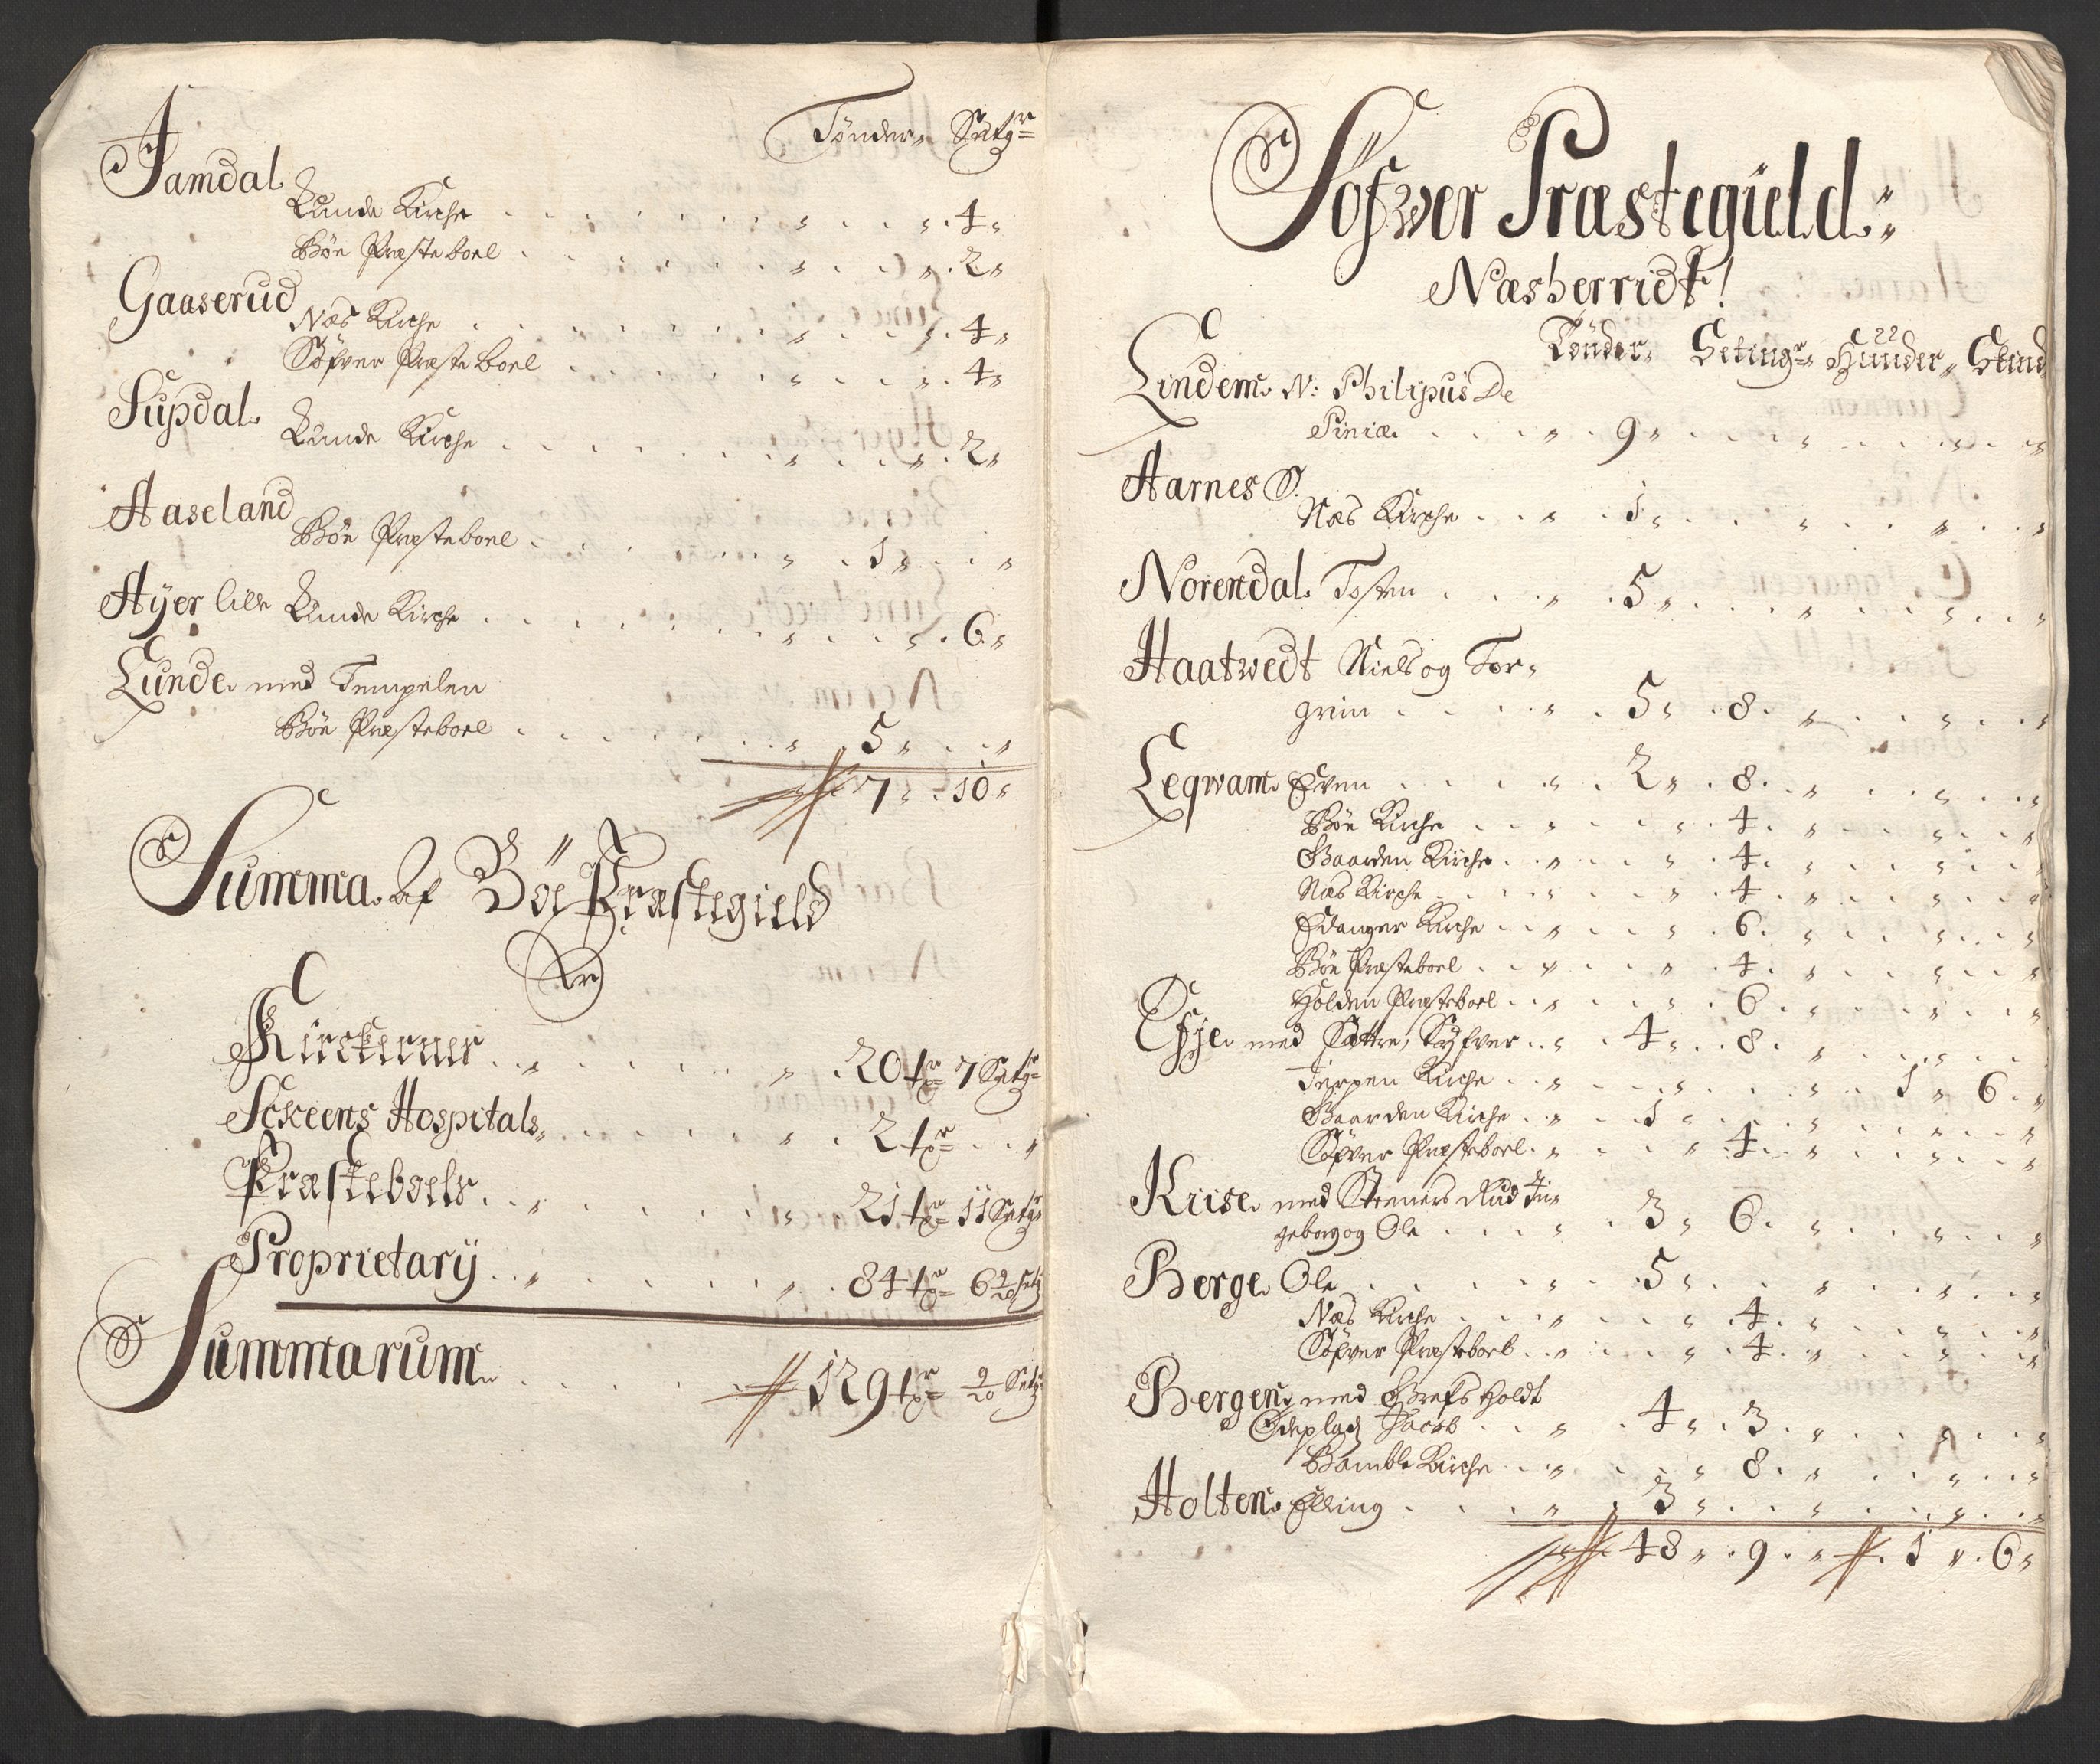 Tønder„ Setgr
Jamdal.
Lunde Kirche . . . . . 4„
Böe Præsteboel . . . . . 2„
Gaaserud
Næs Kirche . . . . . 4„
Söfver Præsteboel . . . . . 4„
Supdal.
Lunde Kirche . . . . . 2„
Aaseland
Böe Præsteboel . . . . . 1„ . . „
Ayer lille Lunde Kirche . . . . . 6„
Lunde. med Tempelen
Böe Præsteboel . . . . . 5„ . . „
7„ . 10„
Summa. af Böe Præstegield
Er
Kirckerner . . . . . 20 tr 7 Setgr
Sckeens Hospitals„ . . . . . 2 tr . . „
Præsteboels . . . . . 21 tr 11 Setgr
Proprietarÿ . . . . . 84 tr 6 9/20 setg
Summarum„ . . . . . 129 tr 9/20 Setgr
Söfwer Præstegield.„
Næsherridt!
22
Tönder„ Setingr„ Hünder„ Skind
Lindem. N: Philipus De
Piniæ. . . . „ . 9„ . . . „ . . . „ . . „
Aarnes S.
Næs Kirche . . „ . 1„ . . . „ . . „ . . „
Norendal. Tosten . . . „ . 5„ . . . „ . . „ . . „
Haatwedt Niels og Tor„
grim . . . . „ . 5„ . 8. „ . . „ . . „
Legwam. Even . . . . „ . 2„ . 8. . „ . . „ . . „
Böe Kirche . . „ . . . „ . 4. „ . . „ . . „
Gaarden Kirche . . „ . . . „ . 4. „ . . „ . . „
Næs Kirche . . . „ . . . „ . 4 . „ . . „ . . „
Edanger Kirche . . „ . . . „ . 6. „ . . „ . . „
Böe Præsteboel . . „ . . . „ . 4. „ . . „ . . „
Holden Præsteboel . . „ . . . „ . 6 . „ . . „ . . „
Efje. med Sættre, Syfver . . „ . 4„ . 8. „ . . „ . .
Tierpen Kirche . . „ . . . „ . . . „ . 1„ 6. „
Gaarden Kirche . . „ . 1„ . . . „ . . „ . . „
Söfver Præsteboel. „ . . . „ . 4. „ . . „ . . „
Kriise. med Steners Rud In„
geborg og Ole . . . . „ . 3„ . 6. „ . . „ . . „
Berge. Ole . . . . „ . 5„ . . . „ . . „ . . „
Næs Kirche . . . „ . . . „ . 4. „ . . „ . . „
Söfver Præsteboel . . „ . . . „ . 4. „ . . „ . . „
Bergen. med Grefs Holdt
Ödeplads Jacob . . „ . 4„ . 3. „ . . „ . . „
Bamble Kirche . . „ . . . „ 8. „ . . „ . . „
Holten. Elling . . . „ . 3„ . . . „ . . „ . . „
48„ . 9. „ . 1„ . 6„